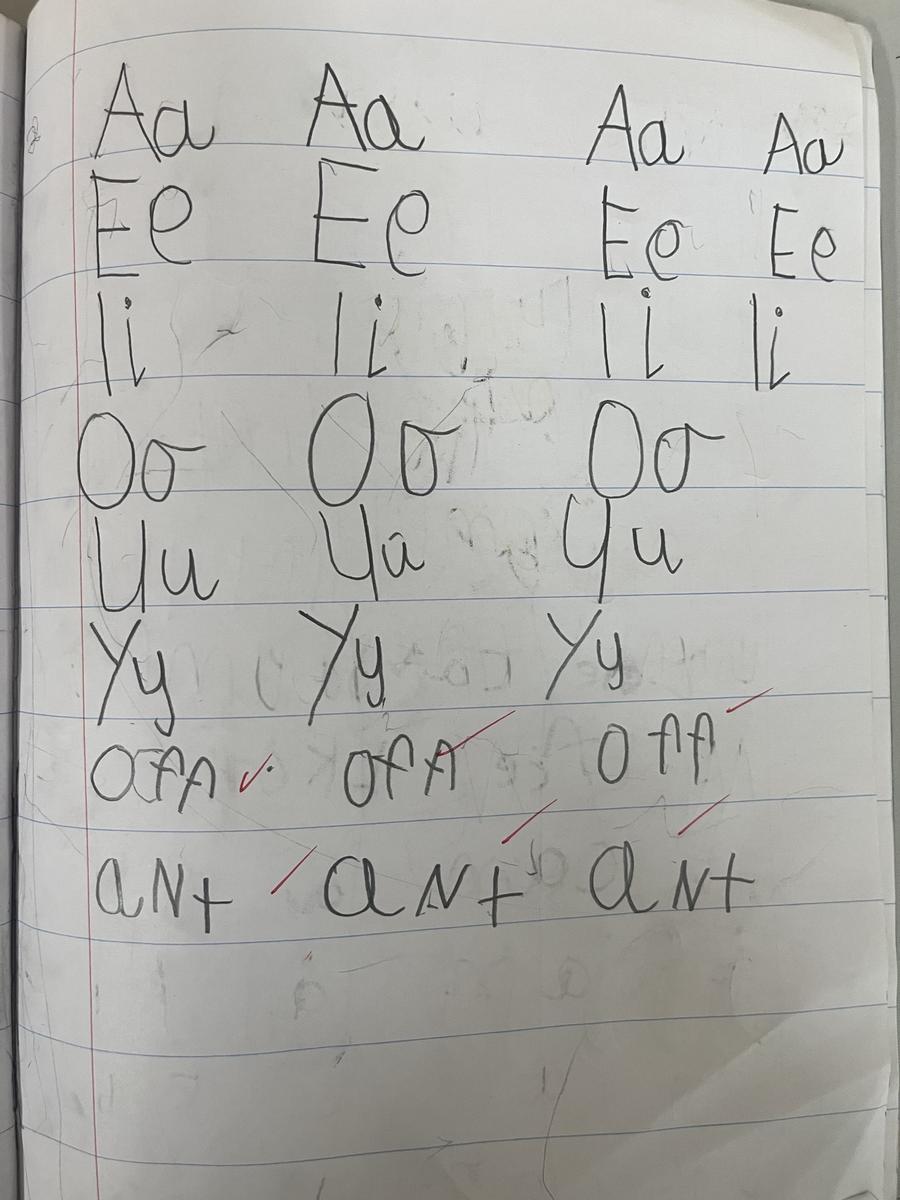 Aa Aa Aa Aa
Ee Ee Ee Ee
Ii Ii Ii Ii
Oo Oo Oo
Uu Uu Uu
Yy Yy Yy
OffA OfA Off
aNt aNt aNt